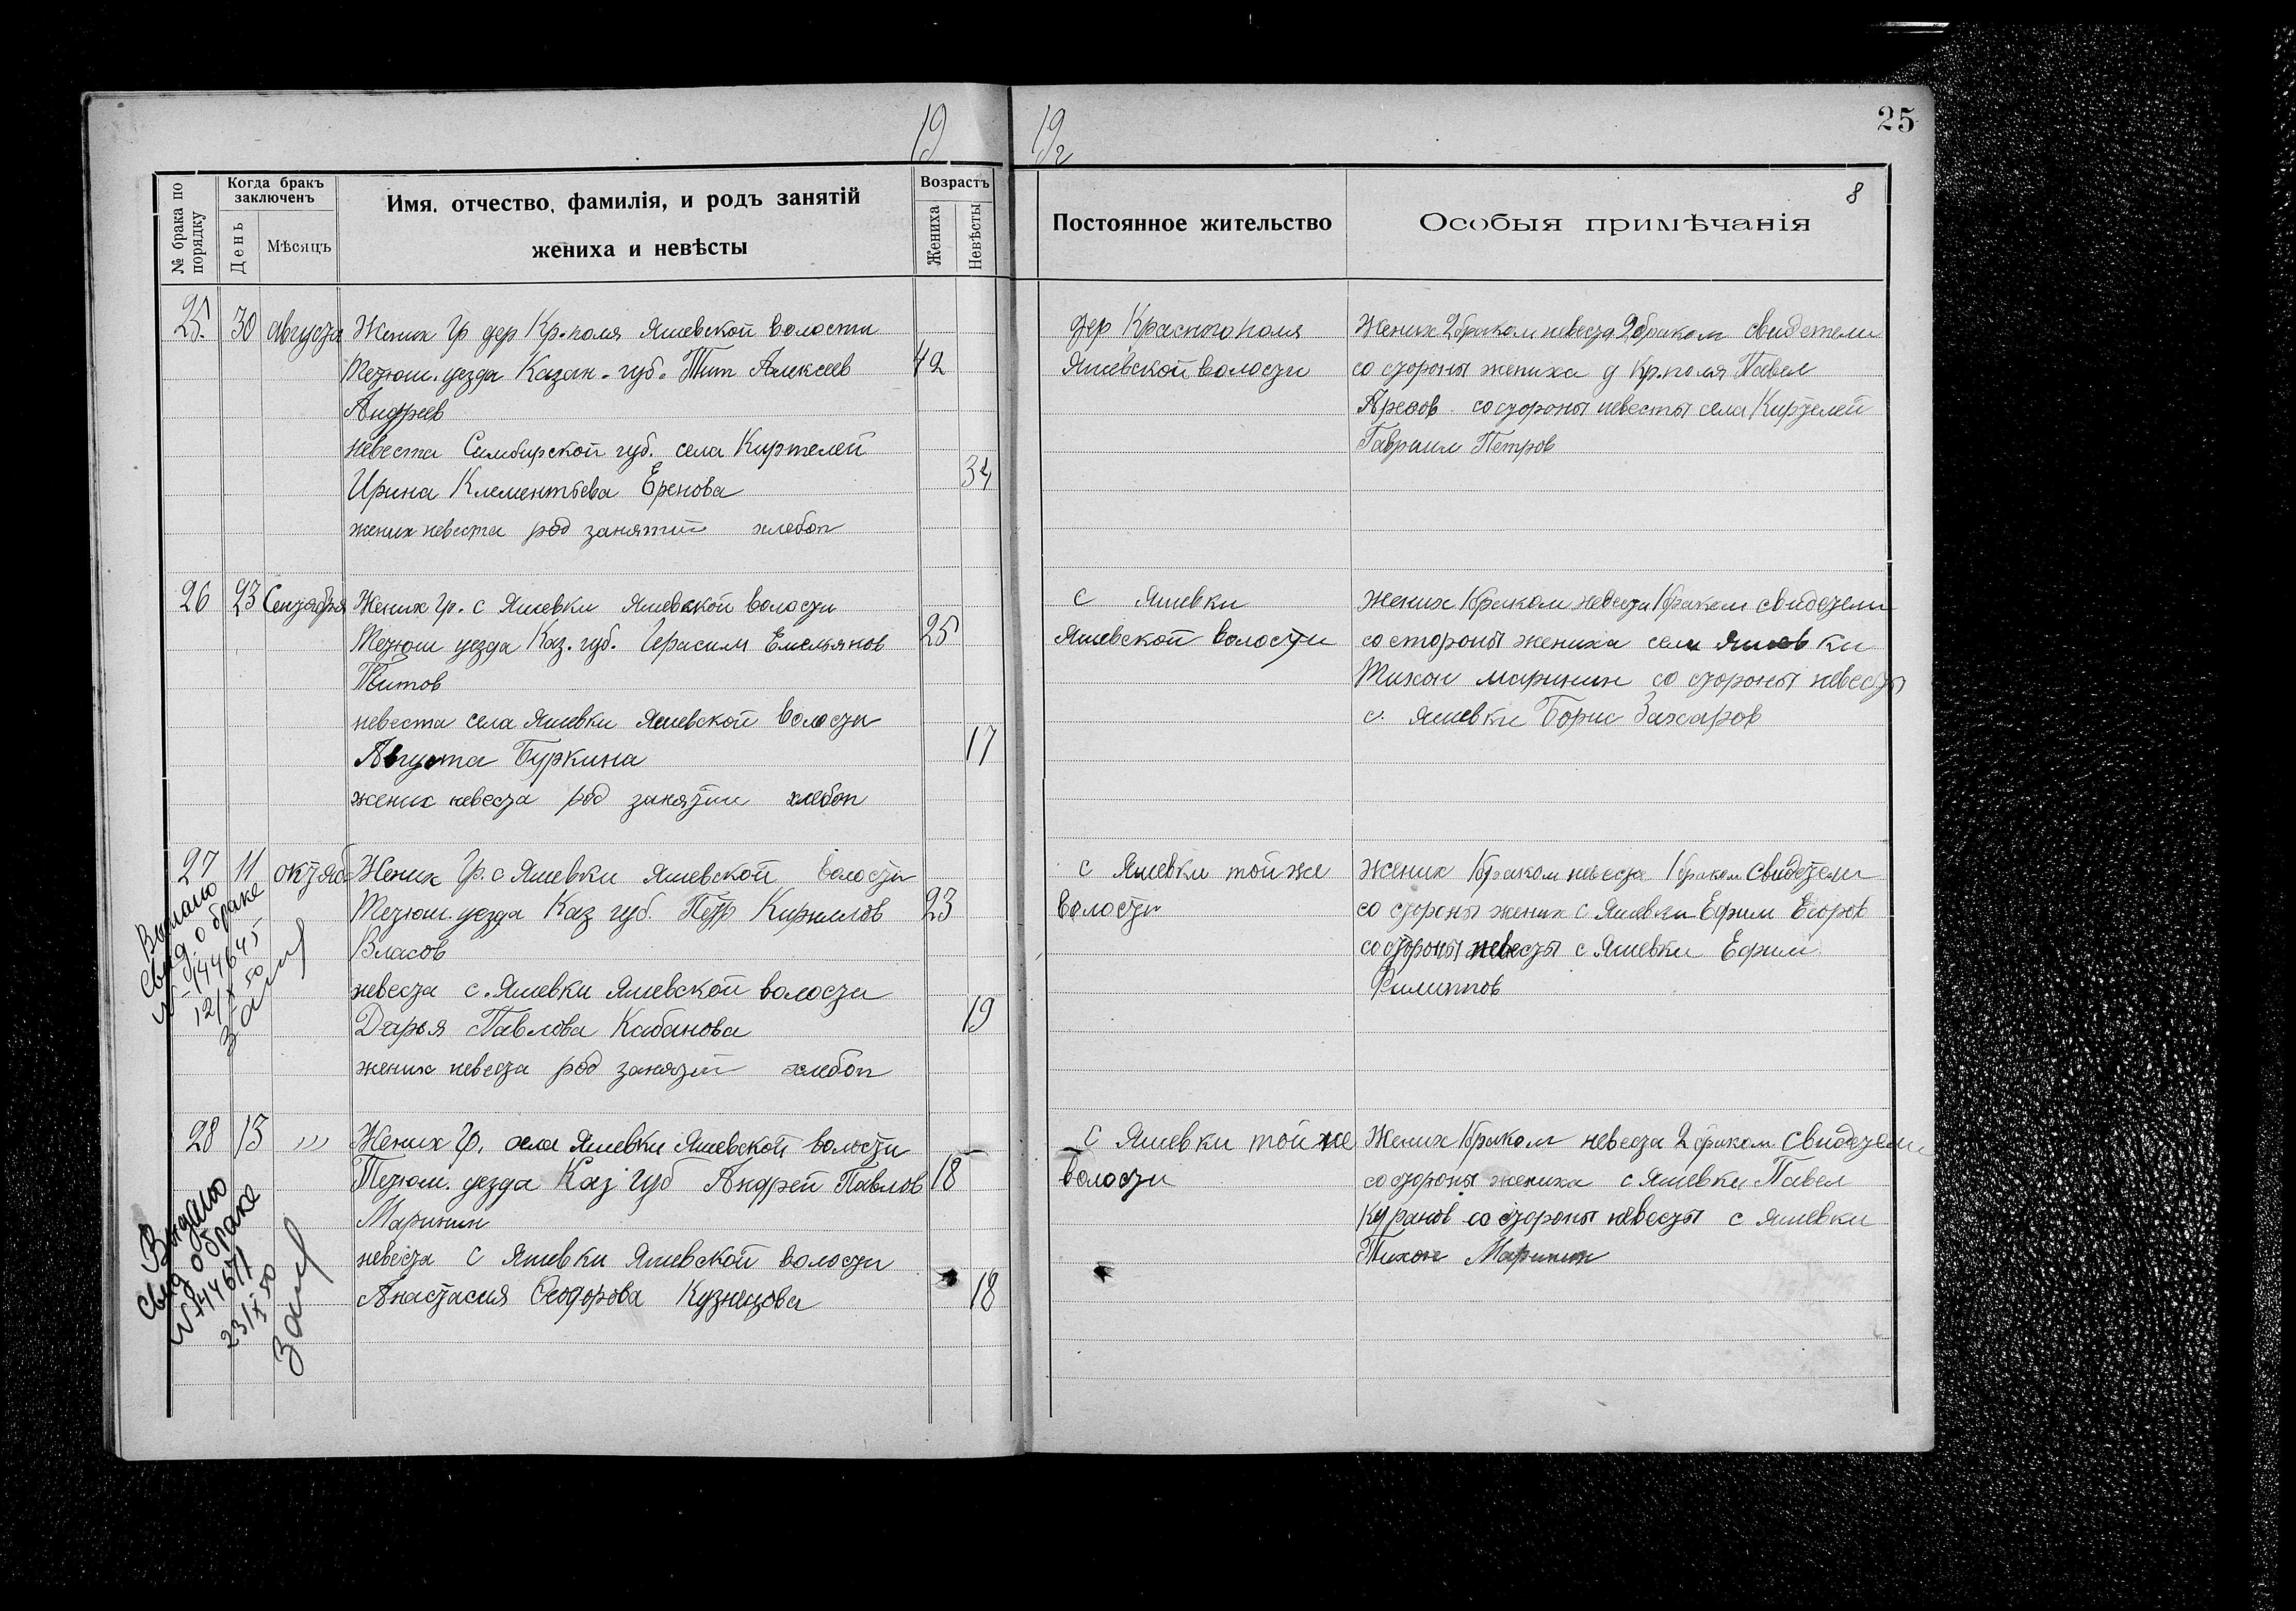 19
19 г
25
8
№ брака по порядку
Когда бракъ заключенъ
День
Мѣсяцъ
Имя, отчество, фамилія, и родъ занятій
жениха и невѣсты
Возрастъ
Жениха
Невѣсты
Постоянное жительство
Особыя примѣчанія
25. 30 августа Жених Гр дер Кр. поля Яшевской волости
Тетюш. уезда Казан. губ. Тит Алексеев 42
Андреев
невеста Симбирской губ. села Киртелей
Ирина Клементьева Еренова 34
жених невеста род занятий хлебоп
дер Красного поля
Яшевской волости
Жених 2 браком невеста 2 браком свидетели
со стороны жениха д Кр. поля Павел
со стороны невесты села Киртелей
Гавриил Петров
26 23 Сентября Жених Гр. с Яшевки Яшевской волости
Тетюш уезда Каз. губ. Герасим Емельянов 25
Титов
невеста села Яшевки Яшевской волости
Августа Буркина 17
жених невеста род занятии хлебоп
с Яшевки
Яшевской волости
Жених 1 браком невеста 1 браком свидетели
со стороны жениха села Яшевки
Тихон Маринин со стороны невесты
с. Яшевки Борис Захаров
27 11 октяб Жених Гр. с Яшевки Яшевской волости
Тетюш. уезда Каз губ. Петр Кириллов 23
Власов
невеста с. Яшевки Яшевской волости
Дарья Павлова Кабанова 19
жених невеста род занятий хлебоп
Выдано
свид. о браке
№ 144645
12/X 50
с Яшевки той же
волости
Жених 1 браком невеста 1 браком свидетели
со стороны жених с Яшевки Ефим Егоров
со стороны невесты с Яшевки Ефим
Филиппов
28 13 ,,, Жених Гр. села Яшевки Яшевской волости
Тетюш. уезда Каз губ Андрей Павлов 18
Маринин
невеста с Яшевки Яшевской волости
Анастасия Феодорова Кузнецова 18
Выдано
свид о браке
№ 144671
23/X 50
С Яшевки той же
волости
Жених 1 браком невеста 2 браком свидетели
со стороны жениха с Яшевки Павел
Куранов со стороны невесты с Яшевки
Тихон Маринин